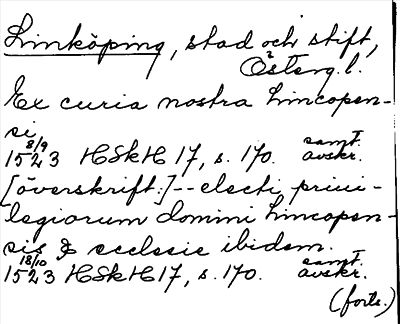 Linköping, stad och stift,
Österg. l.
Ex curia nostra Lincopen-
si
8/9 samt.
1523 HSkH 17, s. 170. avskr.
[överskrift:]--electi, priui-
legiorum domini Lincopen-
sis & ecclesie ibidem.
18/10 samt.
1523 HSkH 17, s. 170. avskr.
(forts.)